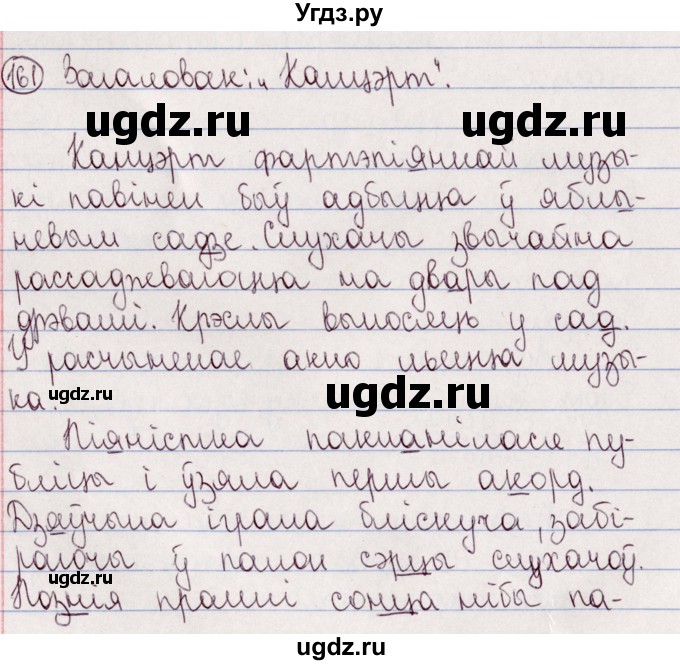 Угдз.ру
161 Загаловак: „Канцэрт".
ugdz.ru ugdz.ru
Канцэрт фартэпіяннай музы-
кі павінен быў адбыцца ў яблы-
невым садзе. Слухачы звычайна
рассаджваюцца на двары пад
дрэвамі. Крэслы выносяць у сад.
У расчыненае акно льецца музы-
ugdz.ru ugdz.ru
ка.
Піяністка пакланілася пу-
бліцы і ўзяла першы акорд.
Дзяўчына іграла бліскуча, забі-
ugdz.ru
раючы ў палон сэрцы слухачоў.
Познія прамні сонца нібы па-
ugdz.ru